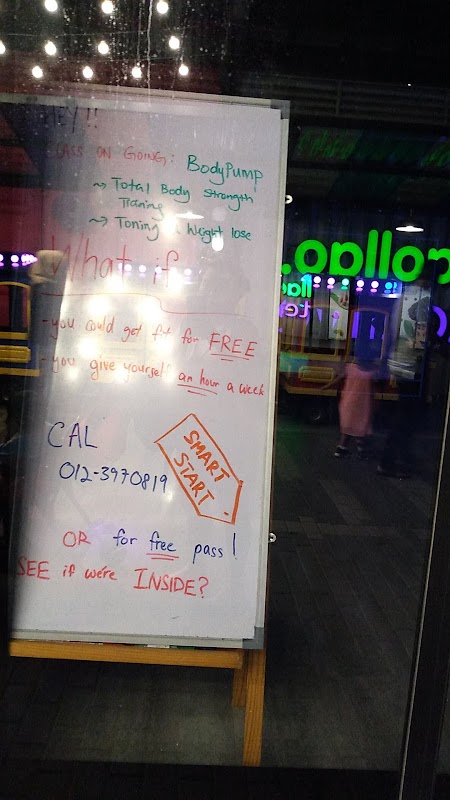 HEY!!
CLASS ON GOING: BodyPump
~> Total Body Strength
Traning
~> Toning & Weight lose
What if
- you could get fit for FREE
- you give yourself an hour a week
CAL
012-3970819
SMART
START
OR for free pass!
SEE if we're INSIDE?
rollao.